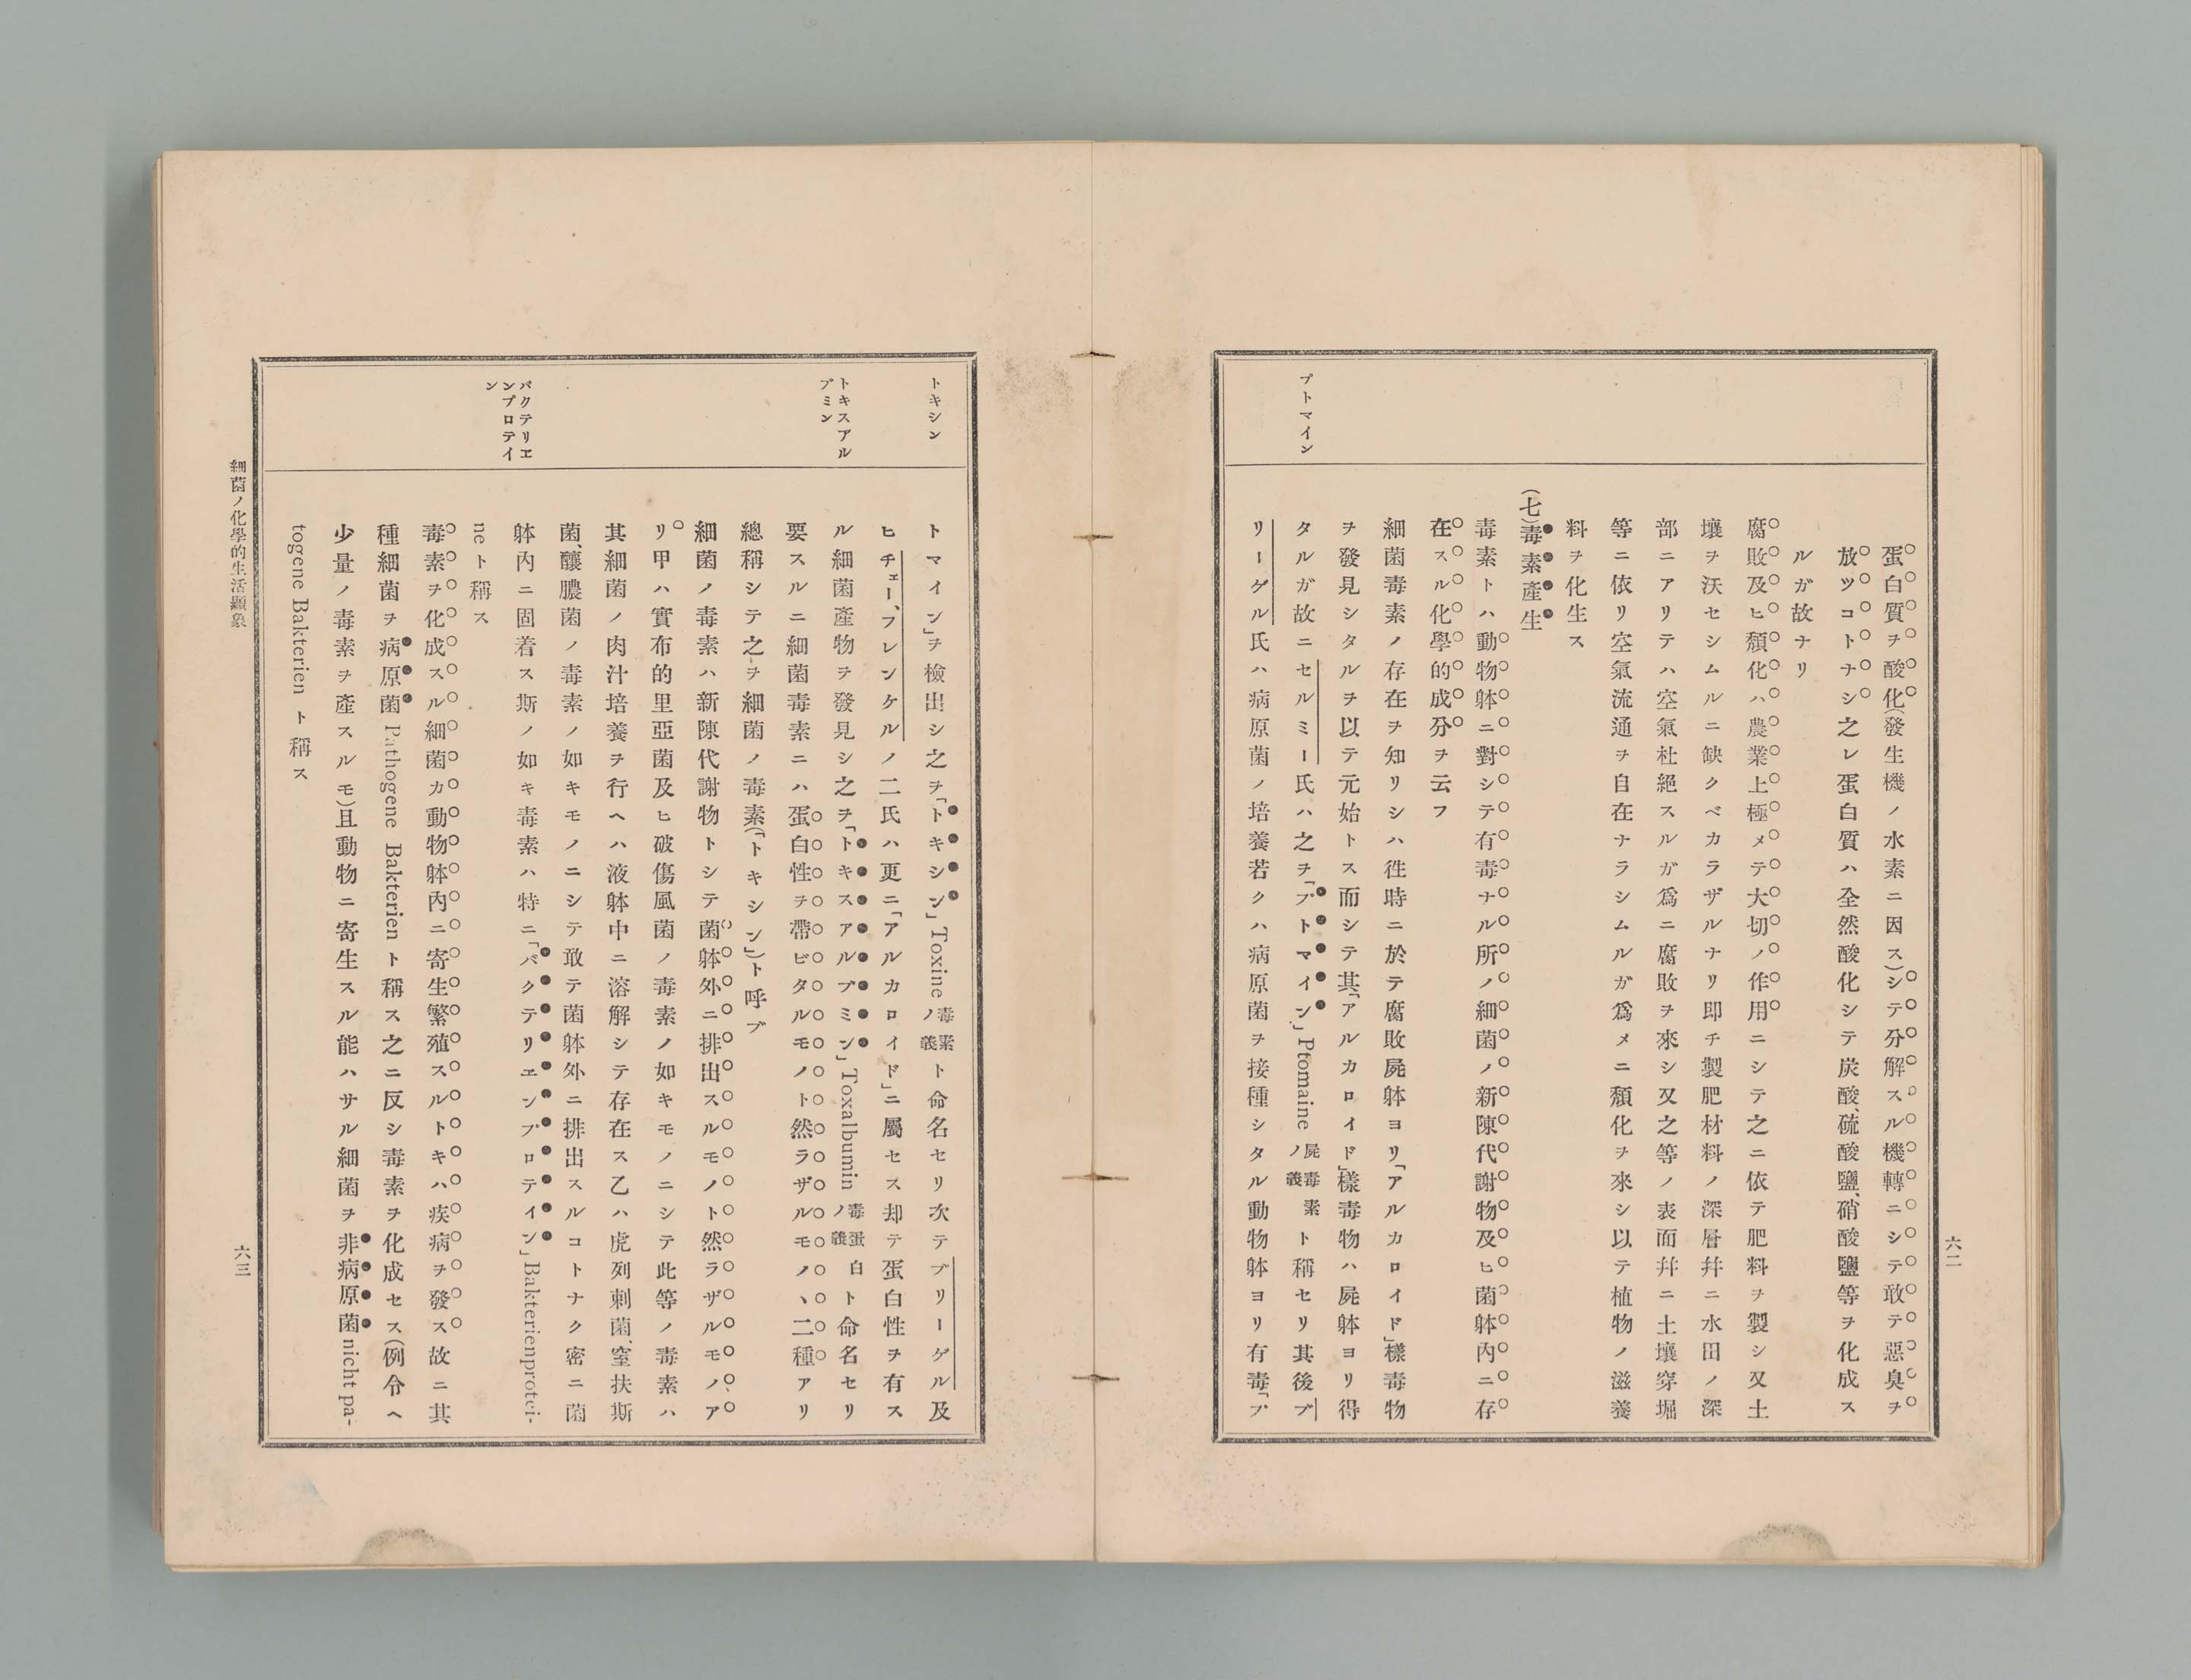 六二
蛋白質ヲ酸化(發生機ノ水素ニ因ス)シテ分解スル機轉ニシテ敢テ惡臭ヲ
放ツコトナシ之レ蛋白質ハ全然酸化シテ炭酸、硫酸鹽、硝酸鹽等ヲ化成ス
ルガ故ナリ
腐敗及ヒ頽化ハ農業上極メテ大切ノ作用ニシテ之ニ依テ肥料ヲ製シ又土
壤ヲ沃セシムルニ缺クベカラザルナリ即チ製肥材料ノ深層幷ニ水田ノ深
部ニアリテハ空氣杜絕スルガ爲ニ腐敗ヲ來シ又之等ノ表面幷ニ土壤穿堀
等ニ依リ空氣流通ヲ自在ナラシムルガ爲メニ頽化ヲ來シ以テ植物ノ滋養
料ヲ化生ス
(七)毒素產生
毒素トハ動物躰ニ對シテ有毒ナル所ノ細菌ノ新陳代謝物及ヒ菌躰內ニ存
在スル化學的成分ヲ云フ
細菌毒素ノ存在ヲ知リシハ徃時ニ於テ腐敗屍躰ヨリ「アルカロイド」樣毒物
ヲ發見シタルヲ以テ元始トス而シテ其「アルカロイド」樣毒物ハ屍躰ヨリ得
プトマイン
タルガ故ニセルミー氏ハ之ヲ「プトマイン」Ptomaine 屍毒素ノ義ト稱セリ其後ブ
リーゲル氏ハ病原菌ノ培養若クハ病原菌ヲ接種シタル動物躰ヨリ有毒「プ
トキシン
トマイン」ヲ檢出シ之ヲ「トキシン」Toxine 毒素ノ義ト命名セリ次テブリーゲル及
ヒチェー、フレンケルノ二氏ハ更ニ「アルカロイド」ニ屬セス却テ蛋白性ヲ有ス
トキスアルブミン
ル細菌產物ヲ發見シ之ヲ「トキスアルブミン」Toxalbumin 毒蛋白ノ義ト命名セリ
要スルニ細菌毒素ニハ蛋白性ヲ帶ビタルモノト然ラザルモノヽ二種アリ
總稱シテ之ヲ細菌ノ毒素(「トキシン」)ト呼ブ
細菌ノ毒素ハ新陳代謝物トシテ菌躰外ニ排出スルモノト然ラザルモノア
リ甲ハ實布的里亞菌及ヒ破傷風菌ノ毒素ノ如キモノニシテ此等ノ毒素ハ
其細菌ノ肉汁培養ヲ行ヘハ液躰中ニ溶解シテ存在ス乙ハ虎列刺菌、窒扶斯
菌、釀膿菌ノ毒素ノ如キモノニシテ敢テ菌躰外ニ排出スルコトナク密ニ菌
バクテリエンプロテイン
躰內ニ固着ス斯ノ如キ毒素ハ特ニ「バクテリエンプロテイン」Bakterienprotei-
ne ト稱ス
毒素ヲ化成スル細菌カ動物躰內ニ寄生繁殖スルトキハ疾病ヲ發ス故ニ其
種細菌ヲ病原菌 Pathogene Bakterien ト稱ス之ニ反シ毒素ヲ化成セス(例令ヘ
少量ノ毒素ヲ產スルモ)且動物ニ寄生スル能ハサル細菌ヲ非病原菌 nicht pa-
togene Bakterien ト稱ス
細菌ノ化學的生活顯象
六三